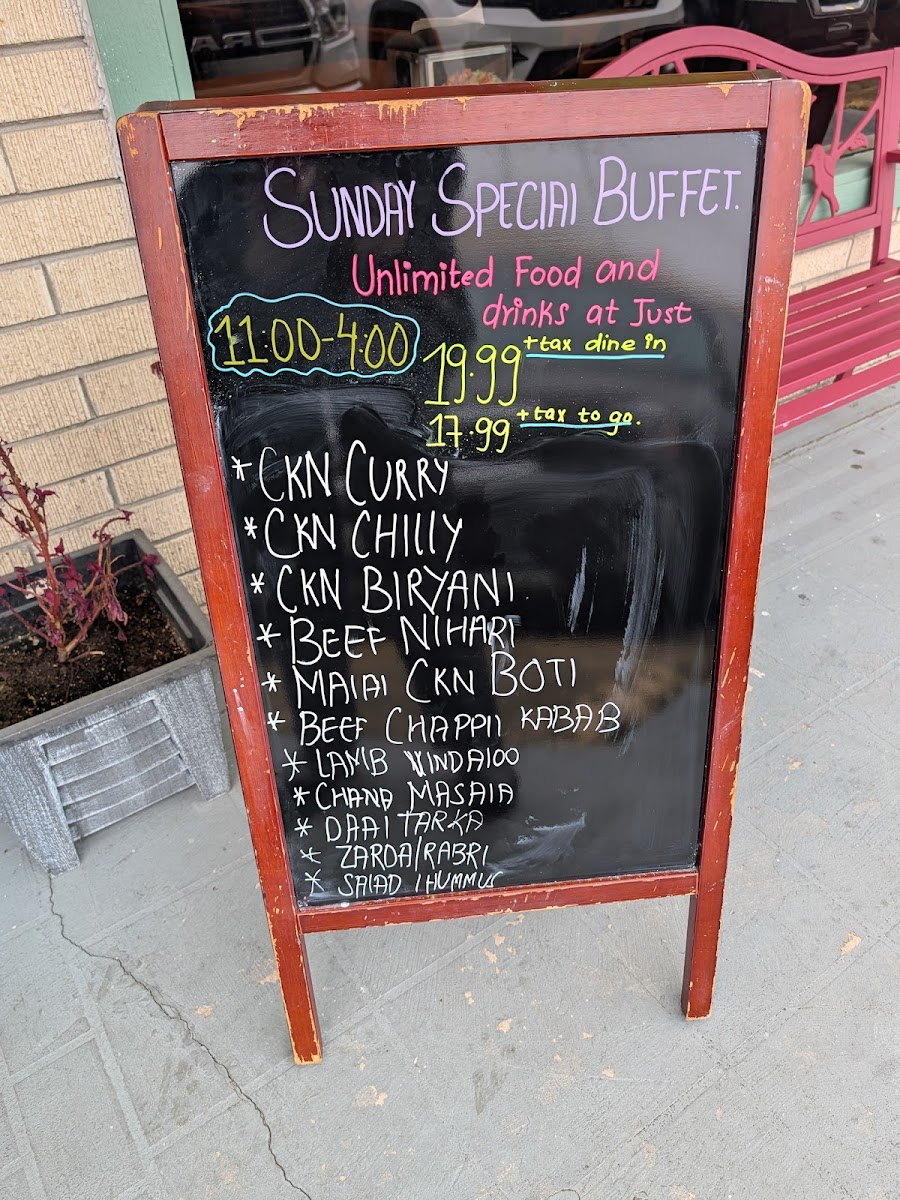 SUNDAY SPECIAl BUFFET.
Unlimited Food and
drinks at Just
11:00-4:00
19.99 +tax dine in
17.99 +tax to go.
* CKN CURRY
* CKN CHIllY
* CKN BIRYANI
* BEEF NIHARI
* MAlAI CKN BOTI
* BEEF CHAPPlI KABAB
* LAMB VINDAlOO
* CHANA MASAlA
* DAAl TARKA
* ZARDA/RABRI
* SAlAD / HUMMUS